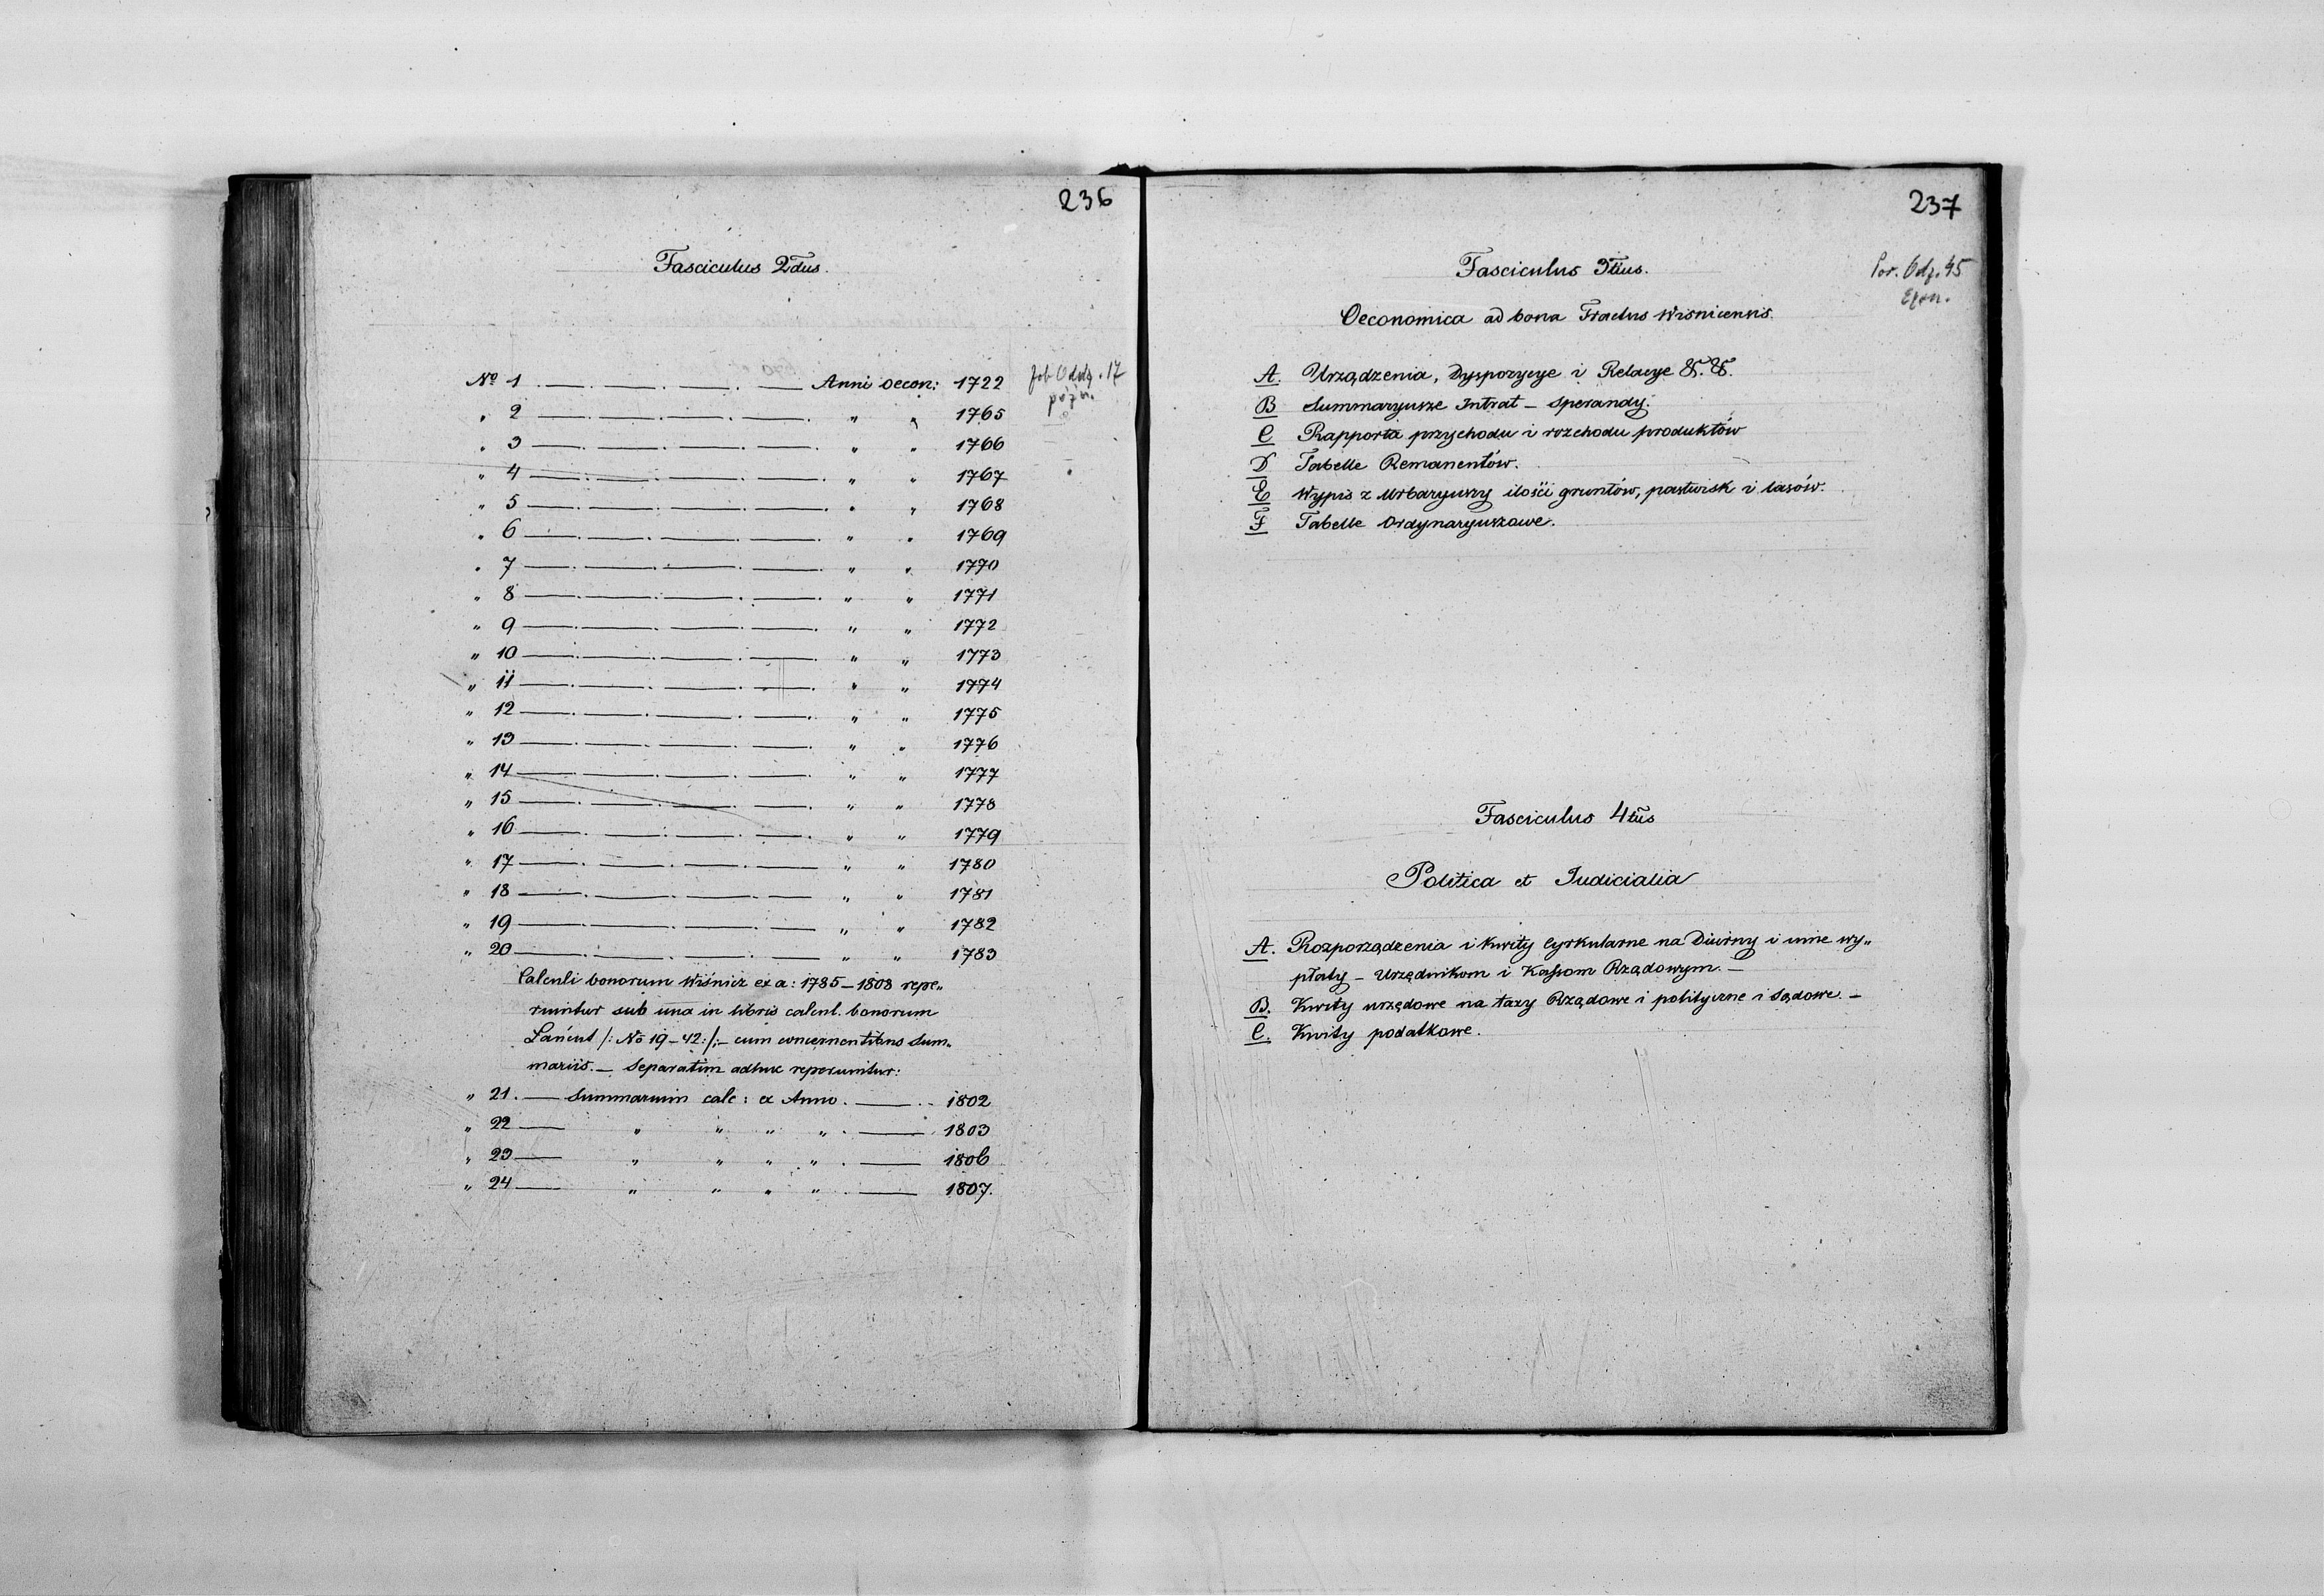 236
Fasciculus 2dus.
No 1 —.—.—.— Anni oecon: 1722
" 2 —.—.—.—. " " 1765
" 3 —.—.—.—. " " 1766
" 4 —.—.—.—. " " 1767
" 5 —.—.—.—. " " 1768
" 6 —.—.—.—. " " 1769
" 7 —.—.—.—. " " 1770
" 8 —.—.—.—. " " 1771
" 9 —.—.—.—. " " 1772
" 10 —.—.—.—. " " 1773
" 11 —.—.—.—. " " 1774
" 12 —.—.—.—. " " 1775
" 13 —.—.—.—. " " 1776
" 14 —.—.—.—. " " 1777
" 15 —.—.—.—. " " 1778
" 16 —.—.—.—. " " 1779
" 17 —.—.—.— " " 1780
" 18 —.—.—.— " " 1781
" 19 —.—.—.— " " 1782
" 20 —.—.—.— " " 1783
Calculi bonorum Wiśnicz ex a: 1785–1808 repe„
riuntur sub una in libris calcul. bonorum
Łańcut /: No 19–42 :/ – cum concernentibus Sum„
mariis. — Separatim adhuc reperiuntur:
" 21. — Summarium calc: ex Anno. — 1802
" 22 — " " " " . — 1803
" 23 — " " " " . — 1806
" 24 — " " " " . — 1807.
237
Fasciculus 3tius.
Por. Odz. 45
Oeconomica ad bona Tractus Wisnicensis.
A. Urządzenia, Dyspozycye i Relacye &. &.
B Summaryusze Intrat – Sperandy.
C Rapporta przychodu i rozchodu produktów
D Tabelle Remanentów.
E Wypis z Urbaryuszy ilości gruntów, pastwisk i lasów.
F Tabelle Ordynaryuszowe.
Fasciculus 4tus
Politica et Iudicialia
A. Rozporządzenia i kwity Cyrkularne na Diurny i inne wy„
płaty – Urzędnikom i Kassom Rządowym. —
B. Kwity urzędowe na taxy Rządowe i polityczne i Sądowe. —
C. Kwity podatkowe.